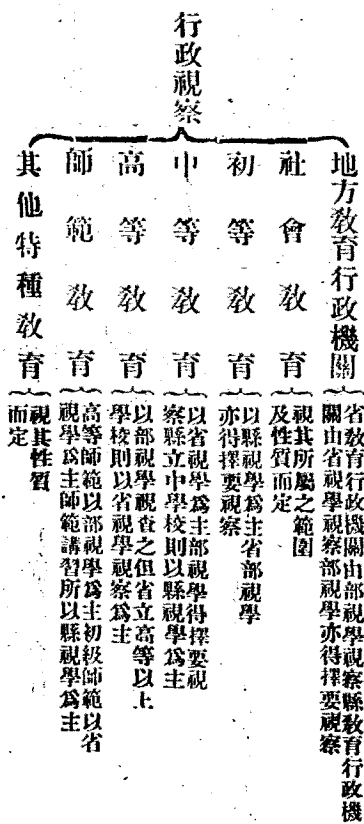 行政視察
地方敎育行政機關
省敎育行政機關由部視學視察縣敎育行政機
關由省視學視察部視學亦得擇要視察
社會敎育
視其所屬之範圍
及性質而定
初等敎育
以縣視學爲主省部視學
亦得擇要視察
中等敎育
以省視學爲主部視學得擇要視
察縣立中學校則以縣視學爲主
高等敎育
以部視學視查之但省立高等以上
學校則以省視學視察爲主
師範敎育
高等師範以部視學爲主初級師範以省
視學爲主師範講習所以縣視學爲主
其他特種敎育
視其性質
而定